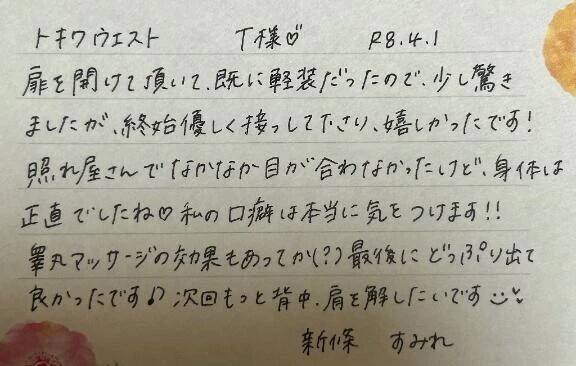 トキワウエスト T様♡ R8.4.1
扉を開けて頂いて、既に軽装だったので、少し驚き
ましたが、終始優しく接っして下さり、嬉しかったです！
照れ屋さんでなかなか目が合わなかったけど、身体は
正直でしたね♡私の口癖は本当に気をつけます!!
睾丸マッサージの効果もあってか(?)最後にどっぷり出て
良かったです♪次回もっと背中、肩を解したいです
新條 すみれ